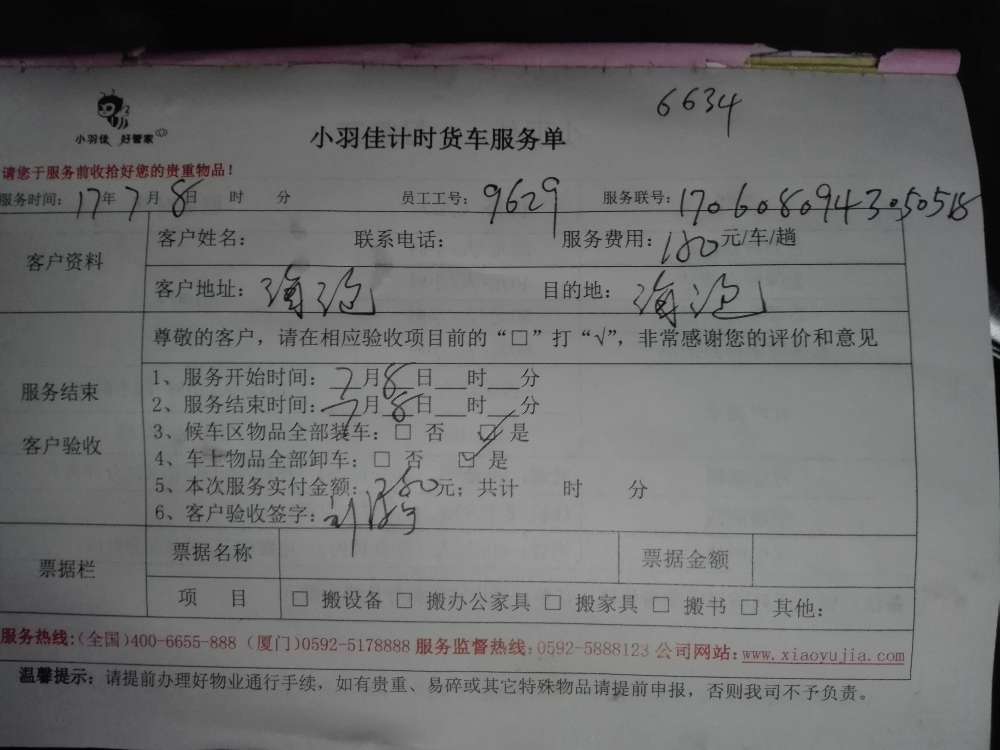 6634
小羽佳 好管家
小羽佳计时货车服务单
请您于服务前收拾好您的贵重物品!
服务时间: 17年 7月 8日 时 分 员工工号: 9629 服务联号: 170608094305051
客户资料 客户姓名: 联系电话: 服务费用: 180元/车/趟
客户地址: 海沧 目的地: 海沧
尊敬的客户，请在相应验收项目前的“□”打“√”，非常感谢您的评价和意见
服务结束
客户验收
1、服务开始时间: 7月8日___时___分
2、服务结束时间: 7月8日___时___分
3、候车区物品全部装车: □ 否 ☑ 是
4、车上物品全部卸车: □ 否 ☑ 是
5、本次服务实付金额: 元; 共计 时 分
6、客户验收签字:
票据栏 票据名称 票据金额
项 目 □ 搬设备 □ 搬办公家具 □ 搬家具 □ 搬书 □ 其他:
服务热线:(全国)400-6655-888 (厦门)0592-5178888 服务监督热线: 0592-5888123 公司网站: www.xiaoyujia.com
温馨提示: 请提前办理好物业通行手续，如有贵重、易碎或其它特殊物品请提前申报，否则我司不予负责。